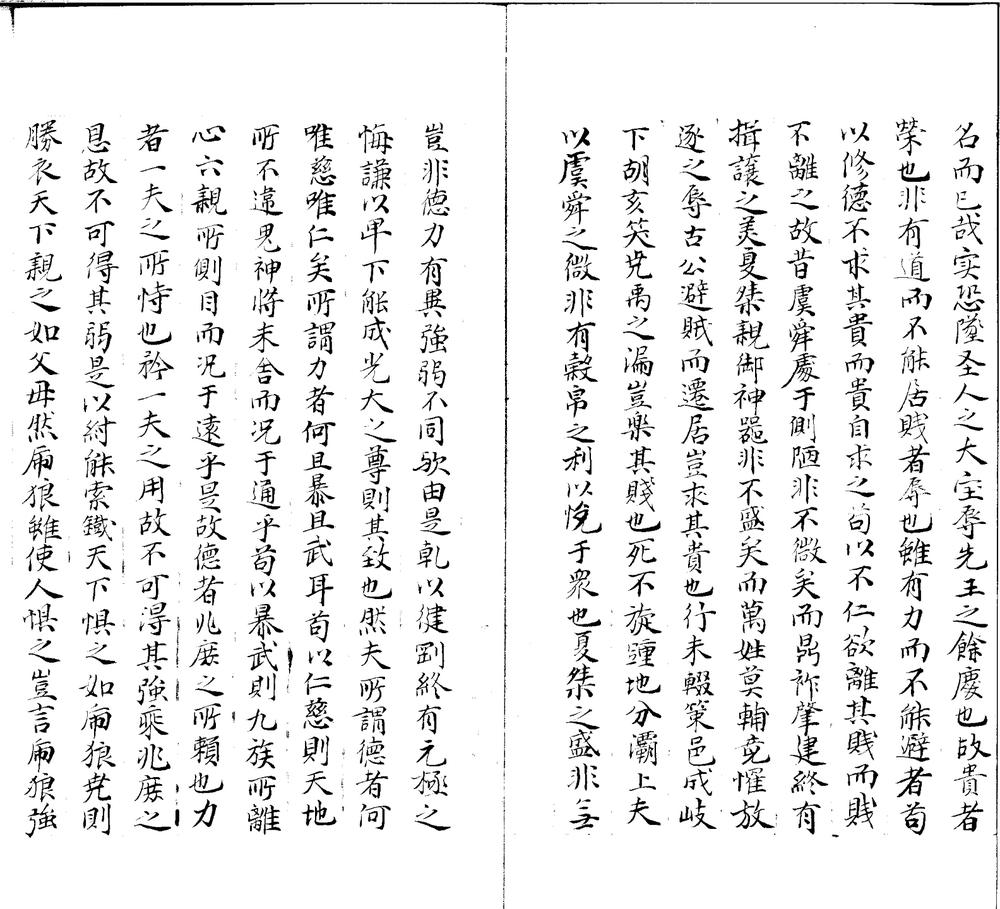 名而已哉实恐墜圣人之大宝辱先王之餘慶也故貴者
榮也非有道而不能居賎者辱也雖有力而不能避者苟
以修德不求其貴而貴自求之苟以不仁欲離其賎而賎
不離之故昔虞舜處于側陋非不微矣而鼎祚肇建終有
揖讓之美夏桀親御神噐非不盛矣而萬姓莫輔竟懼放
逐之辱古公避賊而遷居豈求其貴也行未輟策邑成岐
下胡亥笑尭禹之漏豈樂其賤也死不旋踵地分灞上夫
以虞舜之微非有穀帛之利以悅于衆也夏桀之盛非
豈非德力有異強弱不同欤由是乹以健剛終有亢極之
悔謙以卑下能成光大之尊則其致也然夫所謂德者何
唯慈唯仁矣所謂力者何且暴且武耳苟以仁慈則天地
所不違鬼神將來舍而况于通乎苟以暴武則九族所離
心六親所側目而况于遠乎是故德者兆庶之所賴也力
者一夫之所恃也矜一夫之用故不可得其強乘兆庶之
息故不可得其弱是以紂能索鐵天下惧之如虎狼尭則
勝衣天下親之如父母然虎狼雖使人惧之豈言虎狼強